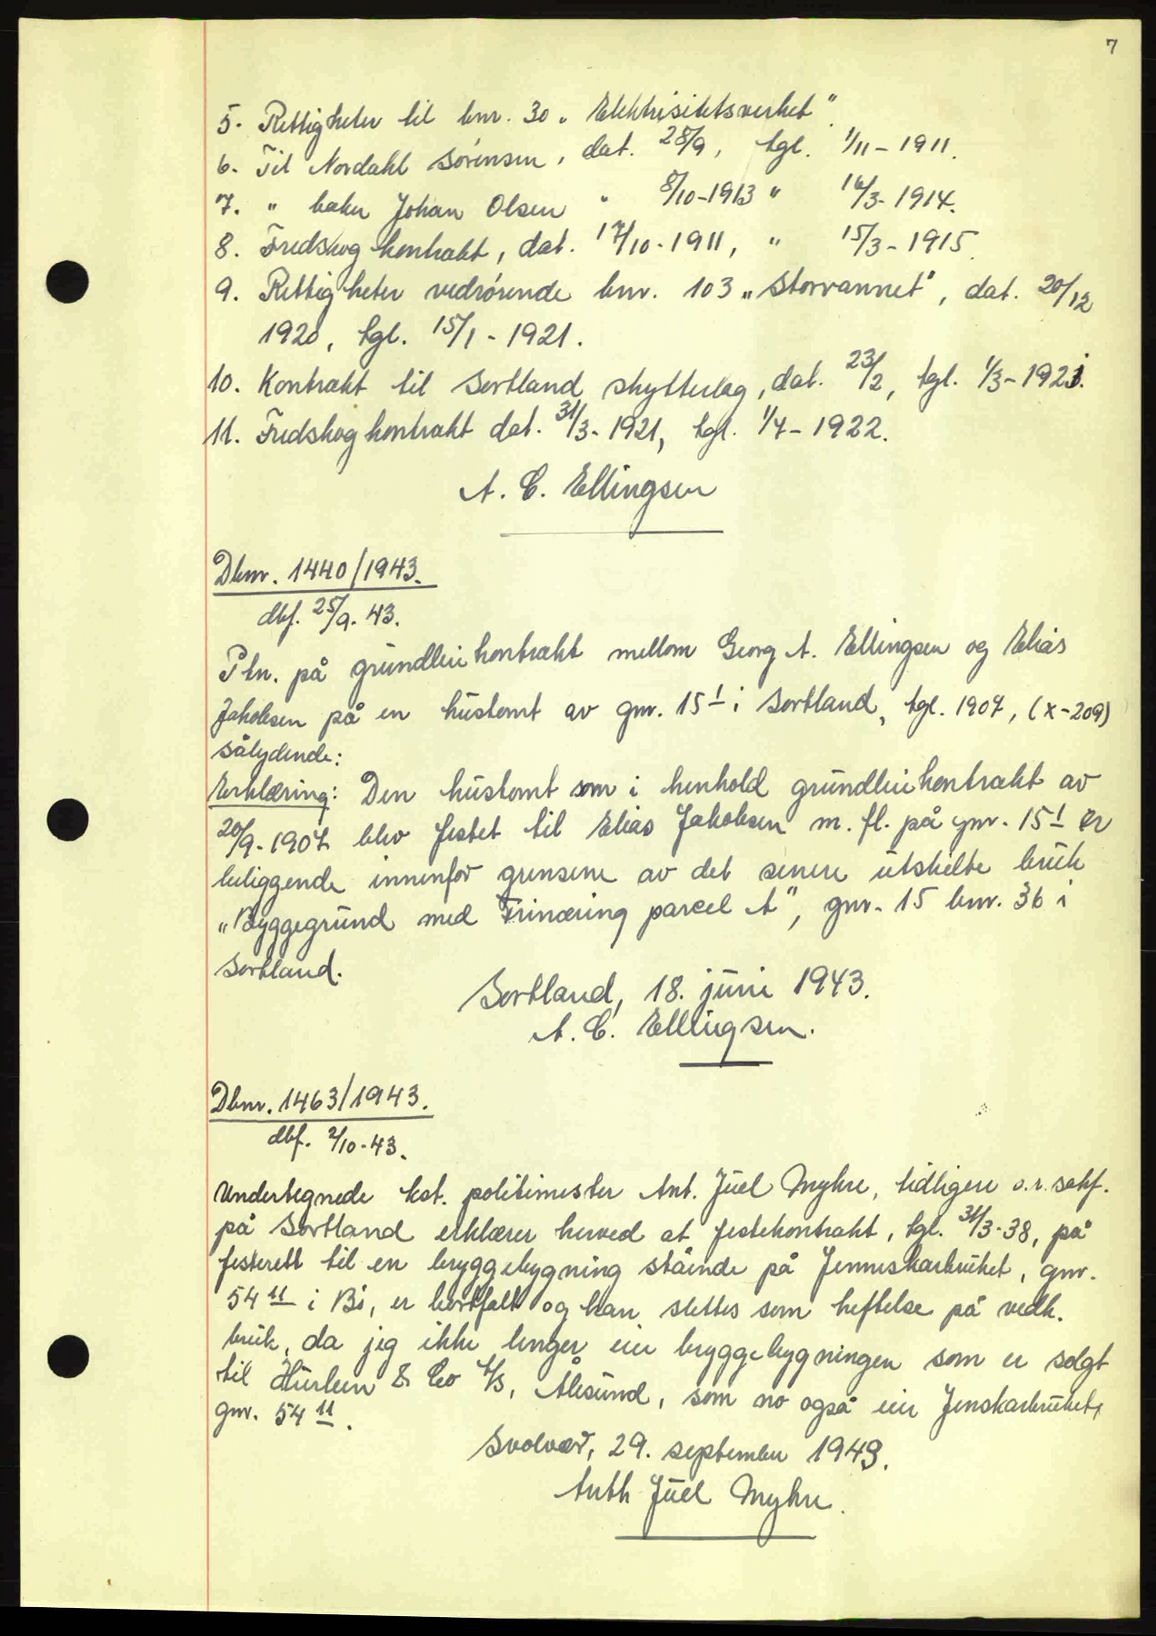 7
5. Rettigheter til bnr. 30 „Elektrisitetsverket".
6. Til Nordahl Sørensen, dat. 28/9, tgl. 1/11 - 1911.
7. " baker Johan Olsen " 8/10-1913 " 16/3-1914.
8. Fredskogkontrakt, dat. 17/10-1911, " 15/3-1915.
9. Rettigheter vedrørende bnr. 103 „Storvannet", dat. 20/12
1920, tgl. 15/1 - 1921.
10. Kontrakt til Sortland skytterlag, dat. 23/2, tgl. 1/3-1921.
11. Fredskogkontrakt dat. 31/3-1921, tgl. 1/4-1922.
A. C. Ellingsen
Dbnr. 1440/1943.
dbf. 25/9-43.
Ptn. på grundleiekontrakt mellom Georg A. Ellingsen og Elias
Jakobsen på en hustomt av gnr. 15 1 i Sortland, tgl. 1907, (X-209)
sålydende:
Erklæring: Den hustomt som i henhold grundleiekontrakt av
20/9-1907 blev festet til Elias Jakobsen m. fl. på gnr. 15 1 er
beliggende innenfor grensene av det senere utskilte bruk
„Byggegrund med Frinæring parcel A", gnr. 15 bnr. 36 i
Sortland.
Sortland, 18. juni 1943.
A. C. Ellingsen.
Dbnr. 1463/1943.
dbf. 2/10-43.
Undertegnede kst. politimester Ant. Juel Myhre, tidligere o.r.sakf.
på Sortland erklærer herved at festekontrakt, tgl. 31/3-38, på
festerett til en bryggebygning stående på Jennskarbruket, gnr.
54 11 i Bø, er bortfalt og kan slettes som heftelse på vedk.
bruk, da jeg ikke lenger eier bryggebygningen som er solgt
til & Co A/S, Ålesund, som no også eier Jenskarbruket,
gnr. 54 11.
Svolvær, 29. september 1943.
Anth Juel Myhre.